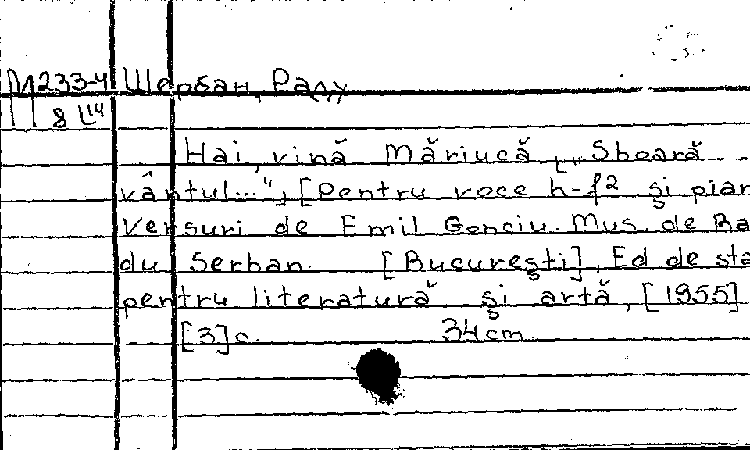 М233-4 Шербан, Раду
8 L14
Hai, vină Măriucă, [„Sboară
vântul...", [Pentru voce h-f² şi pian
Versuri de Emil Genciu. Mus. de Ra
du Serban. [Bucureşti], Ed de sta
pentru literatură şi artă, [1955]
[3] c. 34 cm